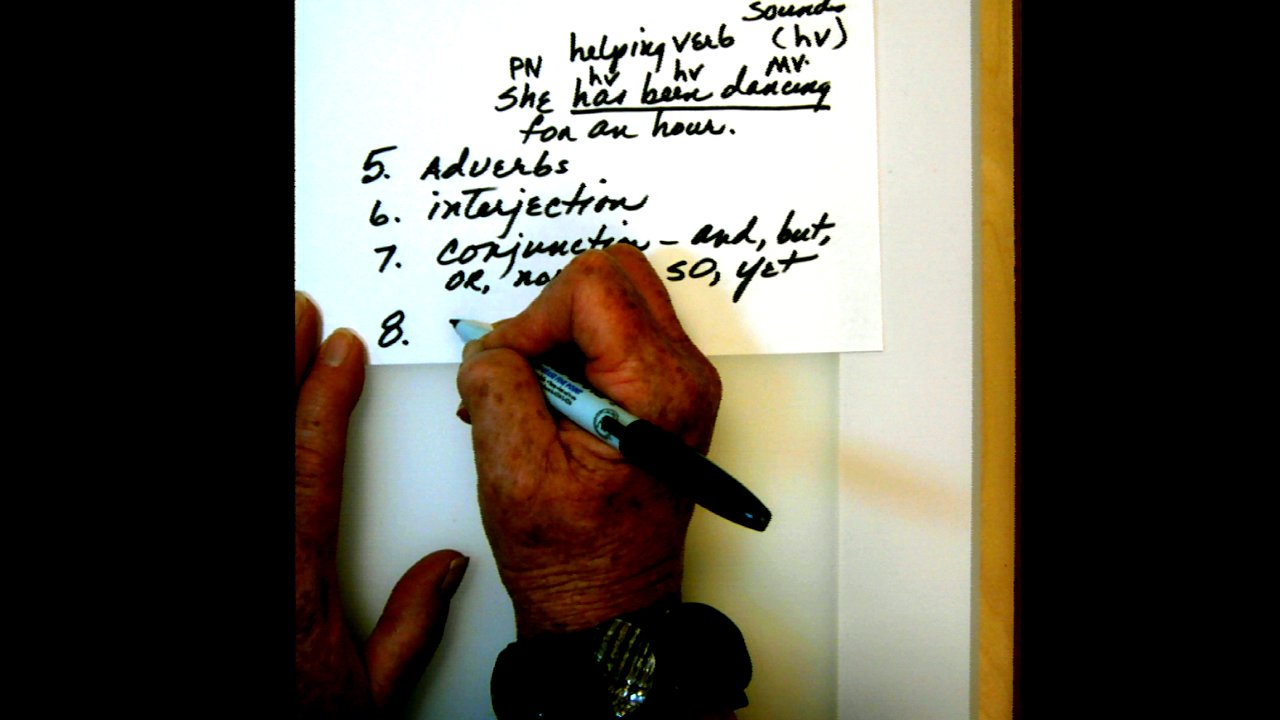 sounds
helping verb (hv)
PN hv hv MV.
She has been dancing
for an hour.
5. Adverbs
6. interjection
7. conjunction - and, but,
OR, so, yet
8.